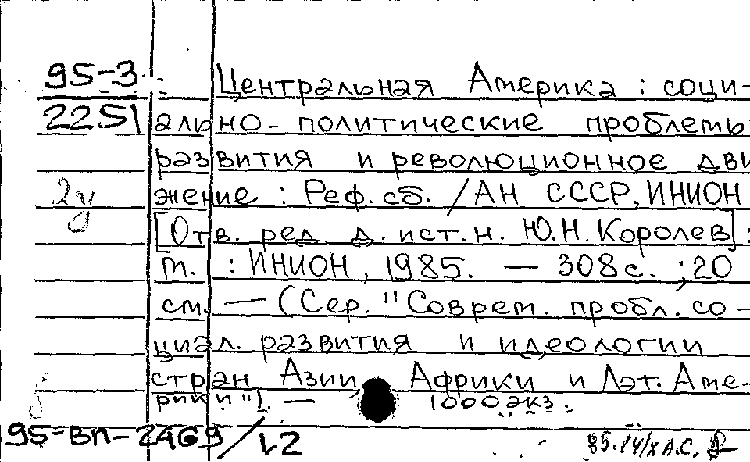 95-3
2251
2у
Центральная Америка : соци-
ально-политические проблемы
развития и революционное дви
жение : Реф. сб. / АН СССР, ИНИОН
[Отв. ред. д. ист. н. Ю.Н. Королев] :
М. : ИНИОН, 1985. — 308 с. ; 20
см. — (Сер. "Соврем. пробл. со-
циал. развития и идеологии
стран Азии, Африки и Лат. Аме-
рики"). — 1000 экз.
95-ВП-2469/1.2